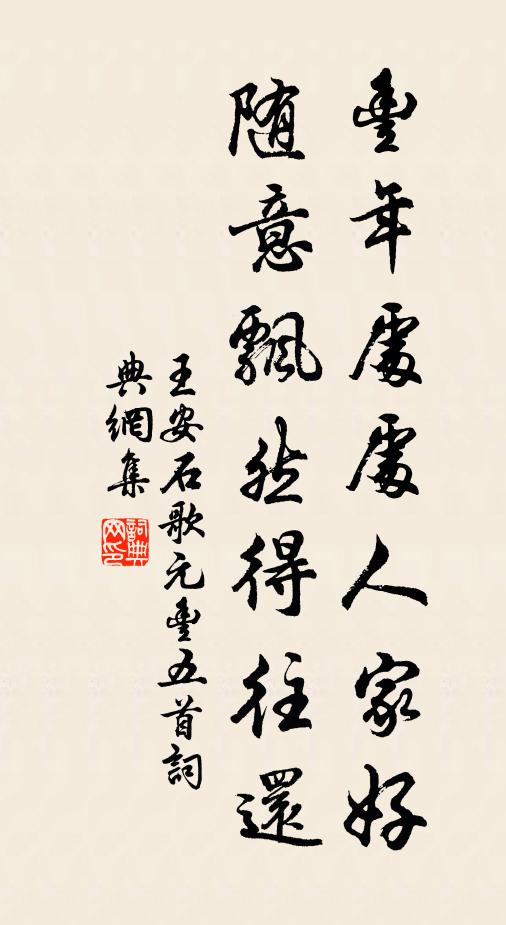 豐年處處人家好
随意飄然得往還
王安石歌元豐五首詞
典網集
詞典網印